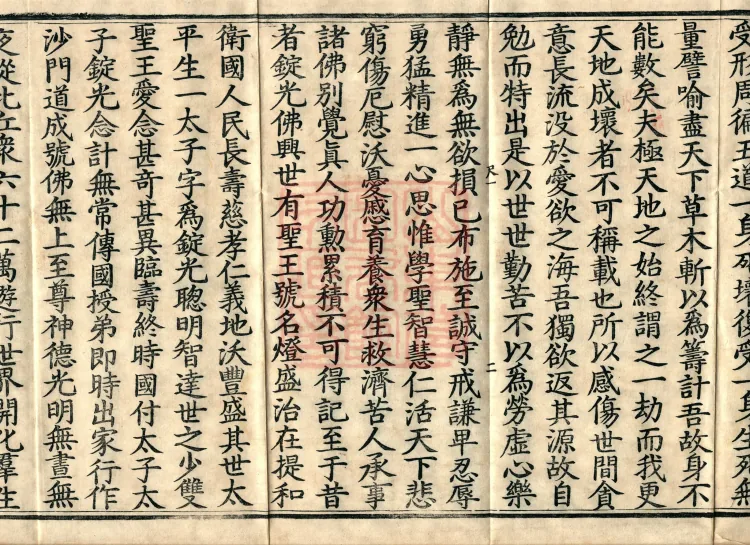 受形周徧五道一身死壞復受一身生死無
量譬喻盡天下草木斬以爲籌計吾故身不
能數矣夫極天地之始終謂之一劫而我更
天地成壞者不可稱載也所以感傷世間貪
意長流没於愛欲之海吾獨欲返其源故自
勉而特出是以世世勤苦不以爲勞虛心樂
尺一 二
靜無爲無欲損己布施至誠守戒謙卑忍辱
勇猛精進一心思惟學聖智慧仁活天下悲
窮傷厄慰沃憂慼育養衆生救濟苦人承事
諸佛別覺眞人功勲累積不可得記至于昔
者錠光佛興世有聖王號名燈盛治在提和
衛國人民長壽慈孝仁義地沃豐盛其世太
平生一太子字爲錠光聰明智達世之少雙
聖王愛念甚奇甚異臨壽終時國付太子太
子錠光念計無常傳國授弟即時出家行作
沙門道成號佛無上至尊神德光明無晝無
夜從比丘衆六十二萬遊行世界開化羣生